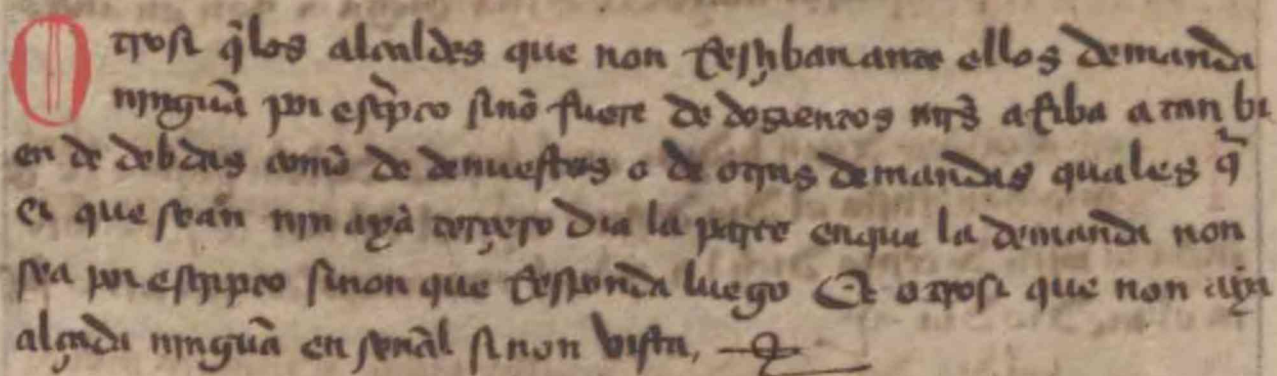 Otrosi q̃ los alcalldes que non Resçiban ante ellos demanda
ninguã por escpto sinõ fuere de dozientos mrs̃ a Riba a tan bi
en de debdas comõ de denuestos o de otras demandas quales q̃
er que sean nin aya terçero dia la parte en que la demanda non
sea por escripto sinon que Responda luego Et otrosi que non aya
alçada ninguã en senal sinon vista,